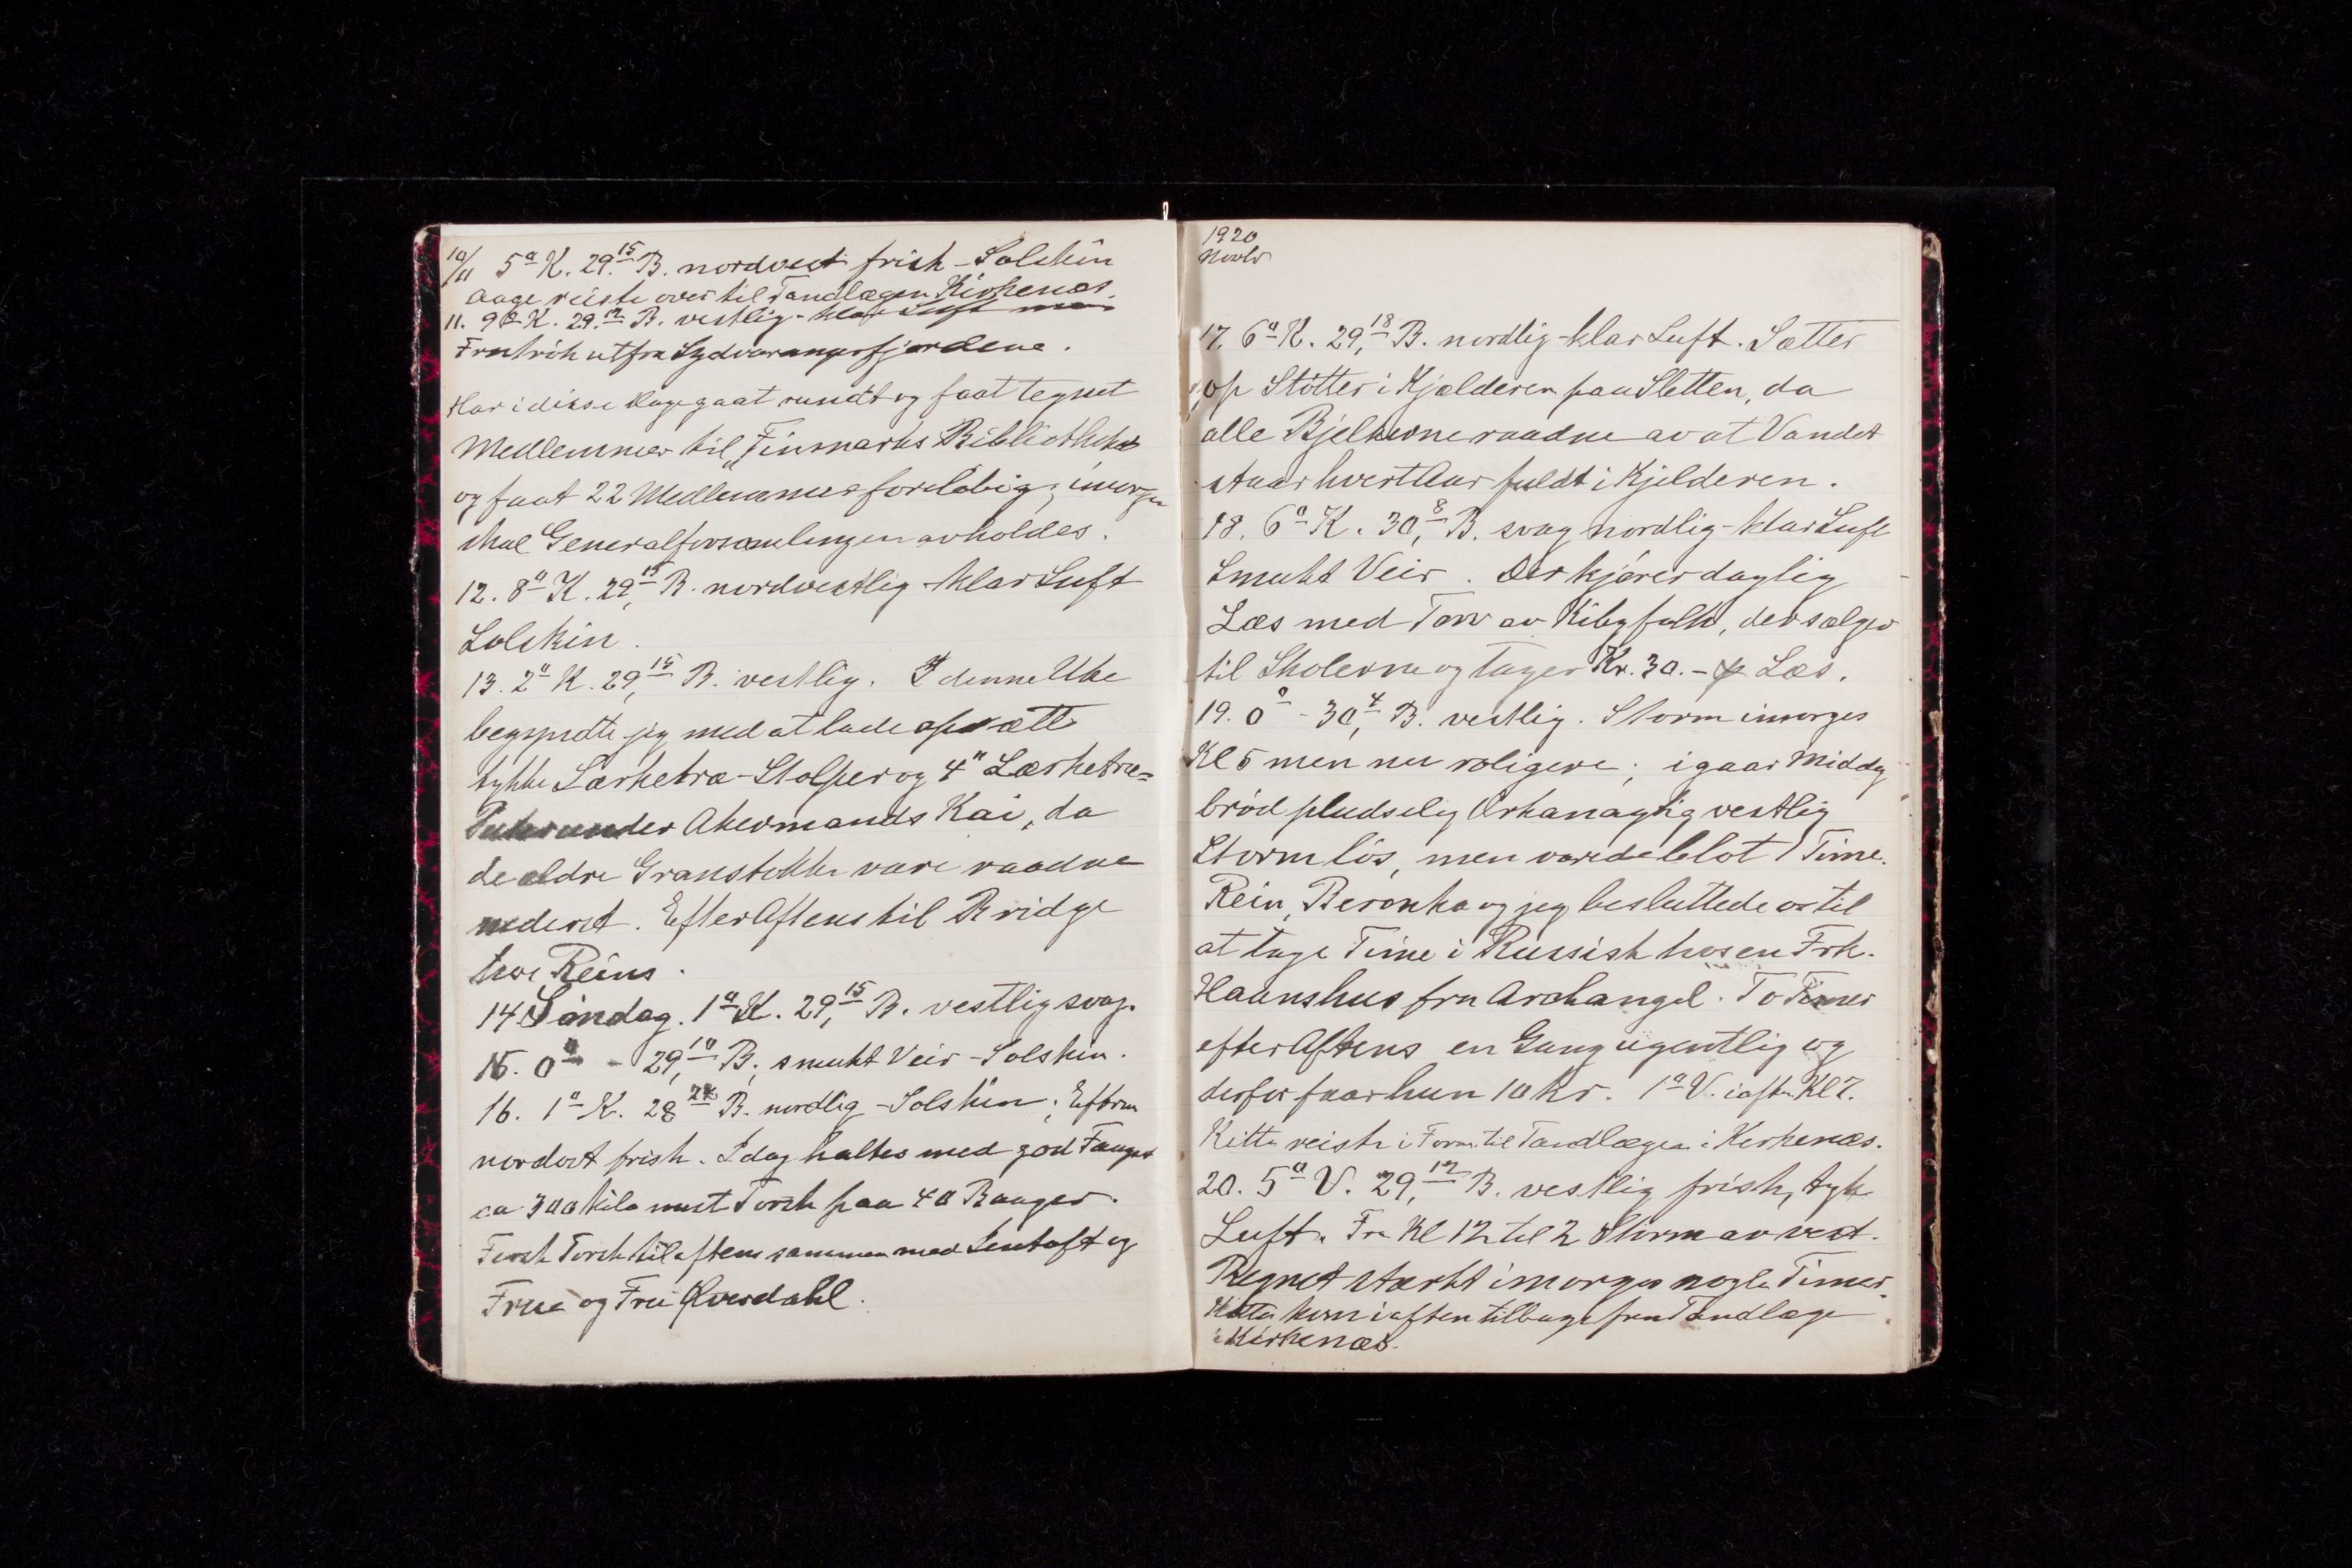 10/11 5° K. 29.15 B. nordvest frisk - Solskin
Aage reiste over til Tandlægen Kirkenæs.
11. 9° K. 29.12 B. vestlig - klar Luft men
Frostrøk ut fra Sydvarangerfjordene.
Har i disse Dage gaat rundt og faat tegnet
Medlemmer til "Finmarks Bibliothek"
og faat 22 Medlemmer foreløbig; imorgen
skal Generalforsamlingen avholdes.
12. 8° K. 29,15 B. nordvestlig - klar Luft
Solskin.
13. 2° K. 29,15 B. vestlig. I denne Uke
begyndte jeg med at lade opsætte
tykke Lærketræ-Stolper og 4" Lærketræ-
under Akermands Kai, da
de ældre Granstokke vare raadne
nederst. Efter Aftens til Bridge
hos Reins.
14 Søndag. 1° K. 29,15 B. vestlig svag.
15. 0° - 29,10 B; smukt Veir - Solskin.
16. 1° K. 28 24 B. nordlig - Solskin; Efterm
nordost frisk. Idag haltes med god Fangst
ca 300 kilo mest Torsk paa 40 Baager.
Fersk Torsk til aftens sammen med Lentoft og
Frue og Fru Qversdahl.
1920
Novbr
17. 6° K. 29,18 B. nordlig - klar Luft. Sætter
op Støtter i Kjælderen paa Sletten, da
alle Bjelkerne raadne av at Vandet
staar hvert Aar fuldt i Kjelderen.
18. 6° K. 30,8 B. svag nordlig - klar Luft
Smukt Veir. Der kjøres daglig
Læs med Torv av Kibyfolk, der sælges
til Skolerne og tager Kr. 30.- p Læs.
19. 0° - 30,4 B. vestlig. Storm imorges
Kl 5 men nu roligere; igaar Middag
brød pludselig Orkanagtig vestlig
Storm løs, men varede blot 1 Time.
Rein, Beronka og jeg besluttede os til
at tage Time i Russisk hos en Frk.
Haanshus fra Archangel. To Timer
efter Aftens en Gang ugentlig og
derfor faar hun 10 Kr. 1° V. iaften Kl 7.
Kitty reiste i Form. til Tandlægen i Kirkenæs.
20. 5° V. 29,12 B. vestlig frisk, tyk
Luft. Fra Kl 12 til 2 Storm av vest.
Regnet stærkt imorges nogle Timer.
Kitty kom iaften tilbage fra Tandlæge
i Kirkenæs.